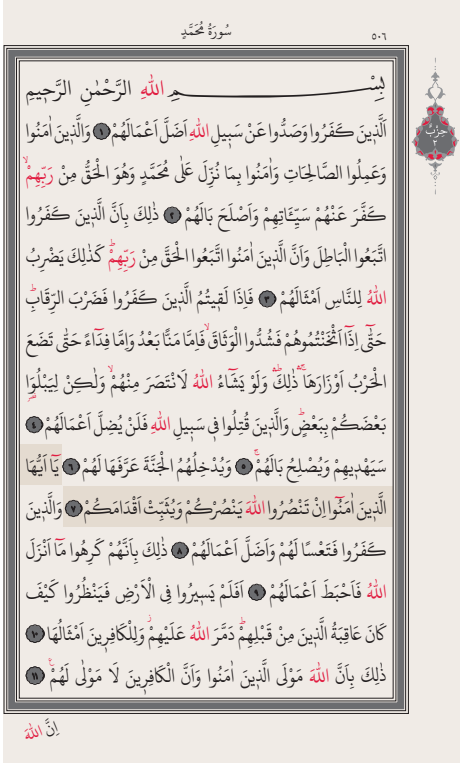 ٥٠٦
سُورَةُ مُحَمَّدٍ
بِسْمِ اللهِ الرَّحْمٰنِ الرَّحٖيمِ
اَلَّذٖينَ كَفَرُوا وَصَدُّوا عَنْ سَبٖيلِ اللهِ اَضَلَّ اَعْمَالَهُمْ ﴿١﴾ وَالَّذٖينَ اٰمَنُوا
وَعَمِلُوا الصَّالِحَاتِ وَاٰمَنُوا بِمَا نُزِّلَ عَلٰى مُحَمَّدٍ وَهُوَ الْحَقُّ مِنْ رَبِّهِمْۙ
كَفَّرَ عَنْهُمْ سَيِّـَٔاتِهِمْ وَاَصْلَحَ بَالَهُمْ ﴿٢﴾ ذٰلِكَ بِاَنَّ الَّذٖينَ كَفَرُوا
اتَّبَعُوا الْبَاطِلَ وَاَنَّ الَّذٖينَ اٰمَنُوا اتَّبَعُوا الْحَقَّ مِنْ رَبِّهِمْؕ كَذٰلِكَ يَضْرِبُ
اللهُ لِلنَّاسِ اَمْثَالَهُمْ ﴿٣﴾ فَاِذَا لَقٖيتُمُ الَّذٖينَ كَفَرُوا فَضَرْبَ الرِّقَابِؕ
حَتّٰٓى اِذَٓا اَثْخَنْتُمُوهُمْ فَشُدُّوا الْوَثَاقَۙ فَاِمَّا مَنًّا بَعْدُ وَاِمَّا فِدَٓاءً حَتّٰى تَضَعَ
الْحَرْبُ اَوْزَارَهَاۚۛ ذٰلِكَؕۛ وَلَوْ يَشَٓاءُ اللهُ لَانْتَصَرَ مِنْهُمْۙ وَلٰكِنْ لِيَبْلُوَ۬ا
بَعْضَكُمْ بِبَعْضٍؕ وَالَّذٖينَ قُتِلُوا فٖي سَبٖيلِ اللهِ فَلَنْ يُضِلَّ اَعْمَالَهُمْ ﴿٤﴾
سَيَهْدٖيهِمْ وَيُصْلِحُ بَالَهُمْۚ ﴿٥﴾ وَيُدْخِلُهُمُ الْجَنَّةَ عَرَّفَهَا لَهُمْ ﴿٦﴾ يَٓا اَيُّهَا
الَّذٖينَ اٰمَنُٓوا اِنْ تَنْصُرُوا اللهَ يَنْصُرْكُمْ وَيُثَبِّتْ اَقْدَامَكُمْ ﴿٧﴾ وَالَّذٖينَ
كَفَرُوا فَتَعْسًا لَهُمْ وَاَضَلَّ اَعْمَالَهُمْ ﴿٨﴾ ذٰلِكَ بِاَنَّهُمْ كَرِهُوا مَٓا اَنْزَلَ
اللهُ فَاَحْبَطَ اَعْمَالَهُمْ ﴿٩﴾ اَفَلَمْ يَسٖيرُوا فِي الْاَرْضِ فَيَنْظُرُوا كَيْفَ
كَانَ عَاقِبَةُ الَّذٖينَ مِنْ قَبْلِهِمْؕ دَمَّرَ اللهُ عَلَيْهِمْؗ وَلِلْكَافِرٖينَ اَمْثَالُهَا ﴿١٠﴾
ذٰلِكَ بِاَنَّ اللهَ مَوْلَى الَّذٖينَ اٰمَنُوا وَاَنَّ الْكَافِرٖينَ لَا مَوْلٰى لَهُمْࣖ ﴿١١﴾
حِزْبُ
٢
اِنَّ اللهَ